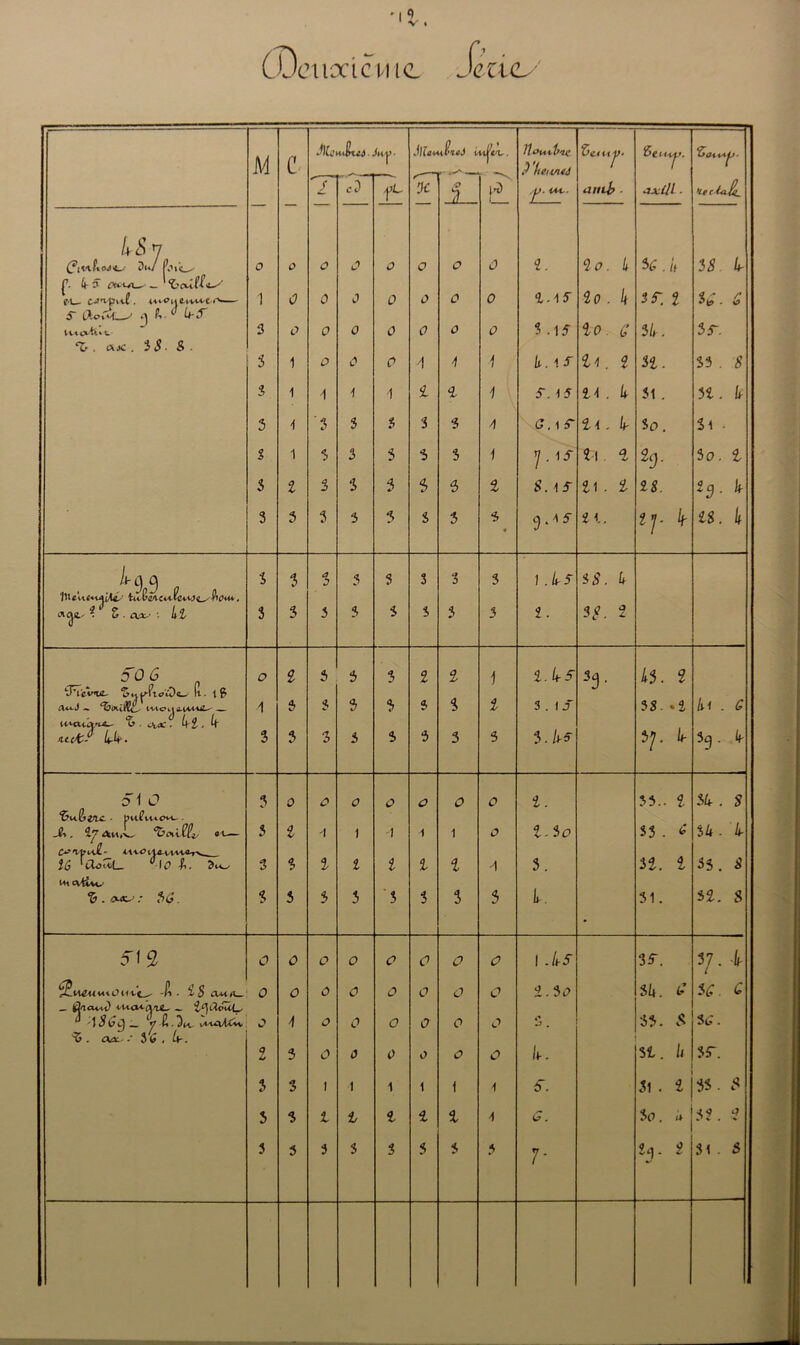 12.
Deuxième Série
M C Membres Sup. Membres infér. Nombre d'heures p. m. Temp. amb. Temp. axill. Temp. rectale
487
Cirrhose du foie
f. 45 ans
T. ax. 38.8.
0 0 0 0 0 0 0 0 2. 20.4 36.4 38.4
1 0 0 0 0 0 0 0 2.15 20.4 35.2 36.6
3 0 0 0 0 0 0 0 3.15 20.6 34. 35.
3 1 0 0 0 1 1 1 4.15 21.2 32. 33.8
3 1 1 1 1 2 2 1 5.15 21.4 31. 32.4
3 1 3 3 3 3 3 1 6.15 21.4 30. 31.
3 1 3 3 3 3 3 1 7.15 21.2 29. 30.2
3 2 3 3 3 3 3 2 8.15 21.2 28. 29.4
3 3 3 3 3 3 3 3 9.15 21. 27.4 28.4
499
Méningite tuberculeuse hom.
T. ax. 42
3 3 3 3 3 3 3 3 1.45 38.4
3 3 3 3 3 3 3 3 2. 38.2
506
Fièvre Typhoïde h. 18
ans
T. ax. 42.4
rect. 44.
0 2 3 3 3 2 2 1 2.45 39. 43.2
1 3 3 3 3 3 3 2 3.15 38.2 41.6
3 3 3 3 3 3 3 3 3.45 37.4 39.4
510
Tuberc. pulmon.
h. 27 ans. Taille et
16 Août 10 h. du
matin
T. ax.: 36.
3 0 0 0 0 0 0 0 2. 33.2 34.8
3 2 1 1 1 1 1 0 2.30 33.6 34.4
3 3 2 2 2 2 2 1 3. 32.2 33.8
3 3 3 3 3 3 3 3 4. 31. 32.8
512
Pneumonie h. 28 ans
1869 7 h. du matin
T. ax.: 36.4.
0 0 0 0 0 0 0 0 1.45 35. 37.4
0 0 0 0 0 0 0 0 2.30 34.6 36.6
0 1 0 0 0 0 0 0 3. 33.8 36.
2 3 0 0 0 0 0 0 4. 32.4 35.
3 3 1 1 1 1 1 1 5. 31.2 33.8
3 3 2 2 2 2 2 1 6. 30.4 32.2
3 3 3 3 3 3 3 3 7. 29.2 31.8